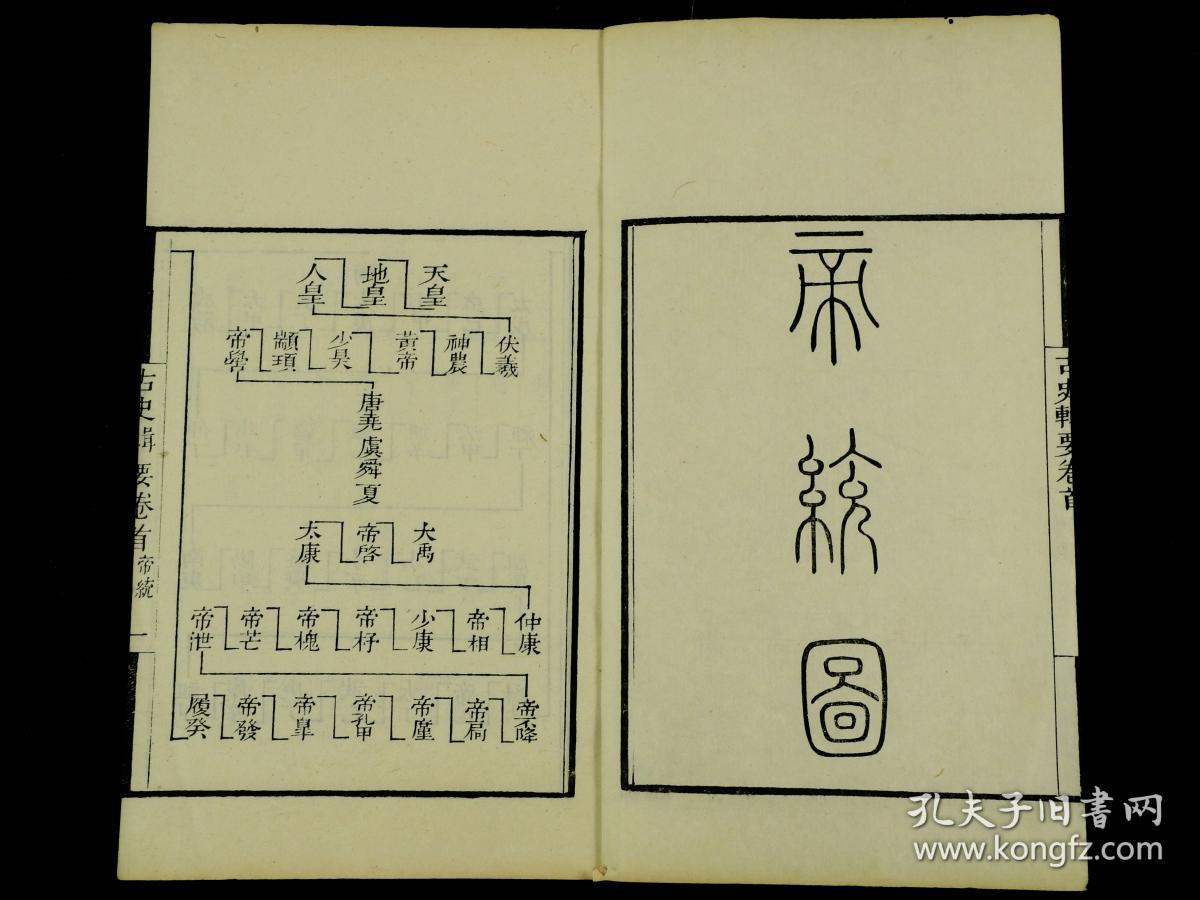 帝統圖
古史輯要卷首
天皇 地皇 人皇
伏羲 神農 黃帝 少昊 顓頊 帝嚳
唐堯虞舜夏
大禹 帝啓 太康
仲康 帝相 少康 帝杼 帝槐 帝芒 帝泄
帝不降 帝扃 帝廑 帝孔甲 帝臯 帝發 履癸
古史輯要卷首 帝統 一
孔夫子旧书网
www.kongfz.com